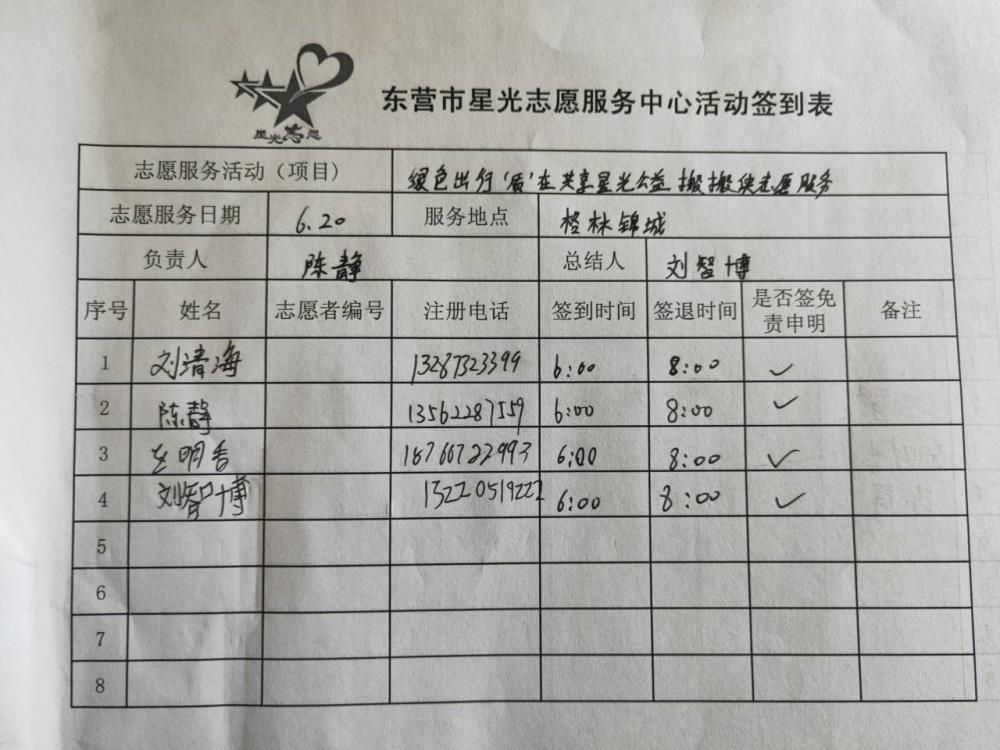 星光志愿
东营市星光志愿服务中心活动签到表
志愿服务活动（项目） 绿色出行‘质’在共享星光公益搬搬侠志愿服务
志愿服务日期 6.20 服务地点 格林锦城
负责人 陈静 总结人 刘智博
序号 姓名 志愿者编号 注册电话 签到时间 签退时间 是否签免责申明 备注
1 刘清海 13287323399 6:00 8:00 ✓
2 陈静 13562287559 6:00 8:00 ✓
3 明香 18766722993 6:00 8:00 ✓
4 刘智博 13220519222 6:00 8:00 ✓
5
6
7
8